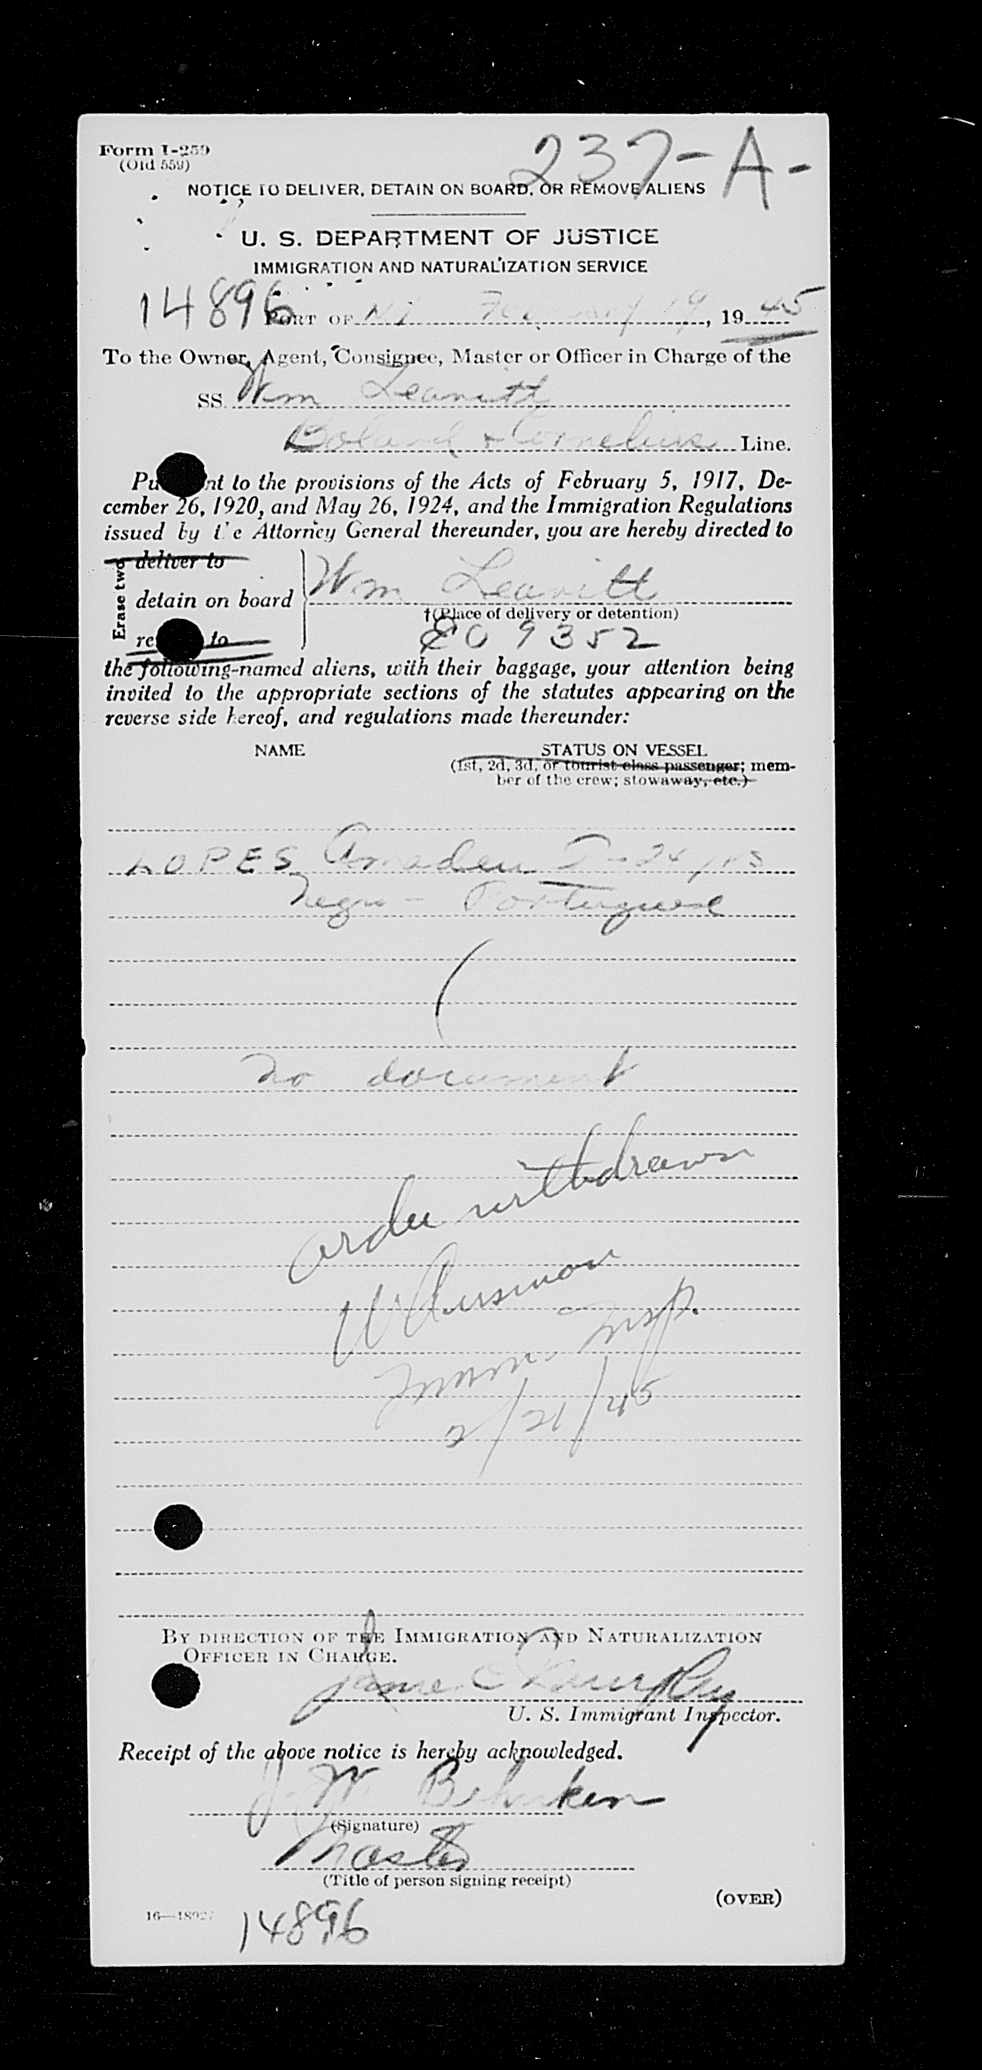 Form I-259
(Old 559)
237-A-
NOTICE TO DELIVER, DETAIN ON BOARD, OR REMOVE ALIENS
U. S. DEPARTMENT OF JUSTICE
IMMIGRATION AND NATURALIZATION SERVICE
14896
PORT OF N.Y. February 19, 1945
To the Owner, Agent, Consignee, Master or Officer in Charge of the
SS. Wm Leavitt
Boland & Cornelius Line.
Pu nt to the provisions of the Acts of February 5, 1917, De-
cember 26, 1920, and May 26, 1924, and the Immigration Regulations
issued by the Attorney General thereunder, you are hereby directed to
Erase two
deliver to
detain on board
re to
Wm Leavitt
†(Place of delivery or detention)
09352
the following-named aliens, with their baggage, your attention being
invited to the appropriate sections of the statutes appearing on the
reverse side hereof, and regulations made thereunder:
NAME STATUS ON VESSEL
(1st, 2d, 3d, or tourist class passenger; mem-
ber of the crew; stowaway, etc.)
LOPES Amadeu T - 24 yrs
Negro - Portuguese
no document
order withdrawn
Imm. Insp.
2/21/45
BY DIRECTION OF THE IMMIGRATION AND NATURALIZATION
OFFICER IN CHARGE.
U. S. Immigrant Inspector.
Receipt of the above notice is hereby acknowledged.
J. W. Behnken
(Signature)
Master
(Title of person signing receipt)
(OVER)
16—18927
14896